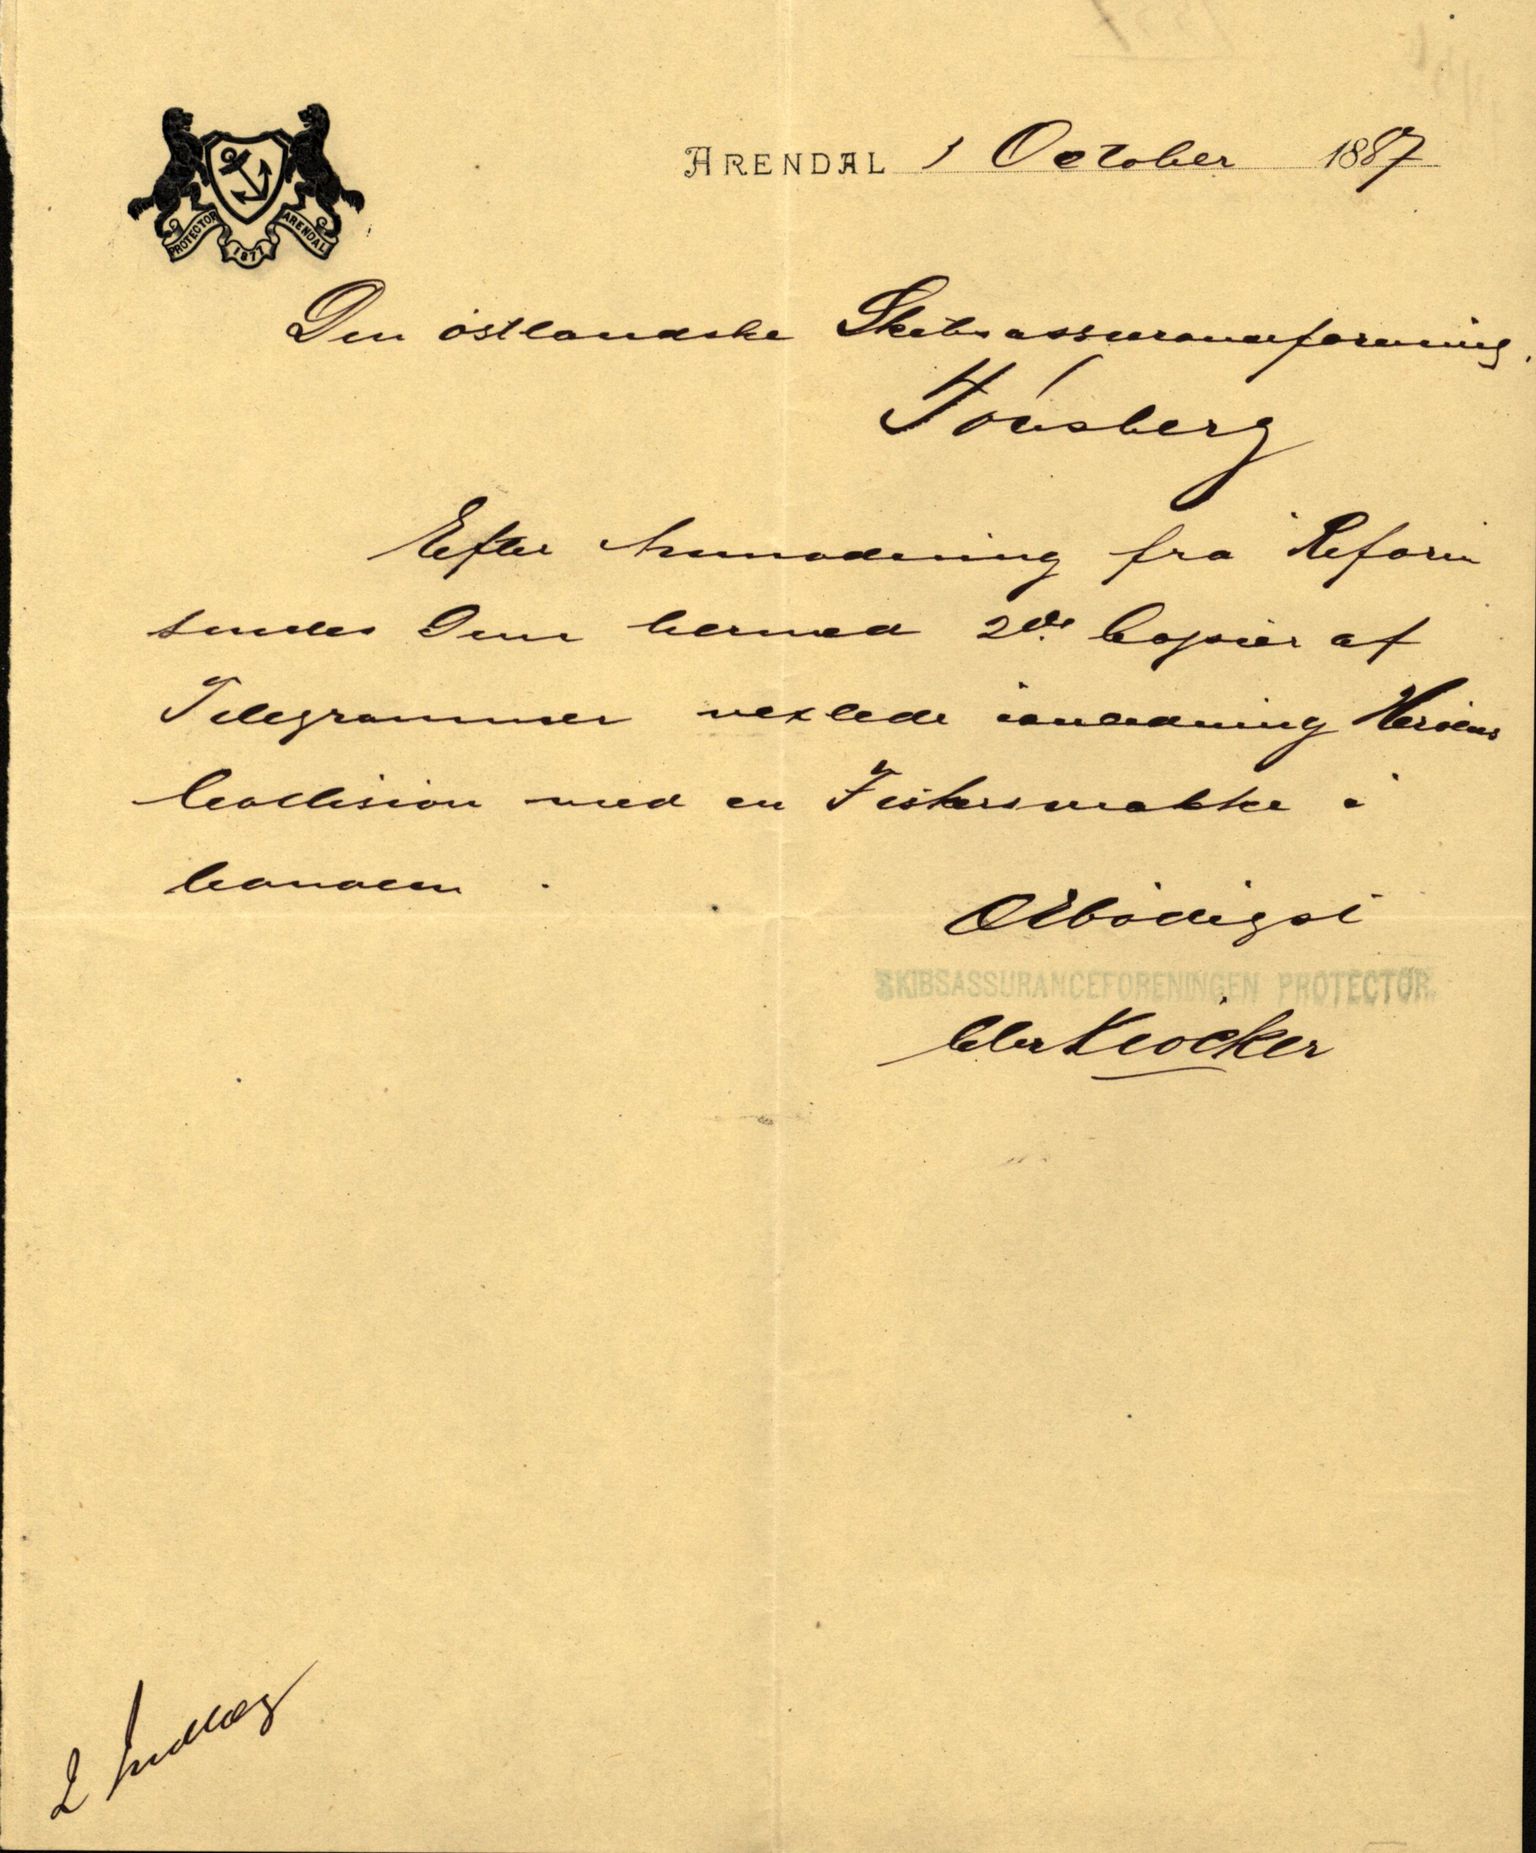 PROTECTOR 1877 ARENDAL
ARENDAL 1 October 1887
Den østlandske Skibsassuranceforening.
Tönsberg
Efter Anmodning fra Reform
sendes Dem hermed 2de Copier af
Telegrammer vexlede ianledning
Collision med en Fiskersmakke i
Canalen.
Ærbödigst
SKIBSASSURANCEFORENINGEN PROTECTOR.
Klöcker
2 Indlæg